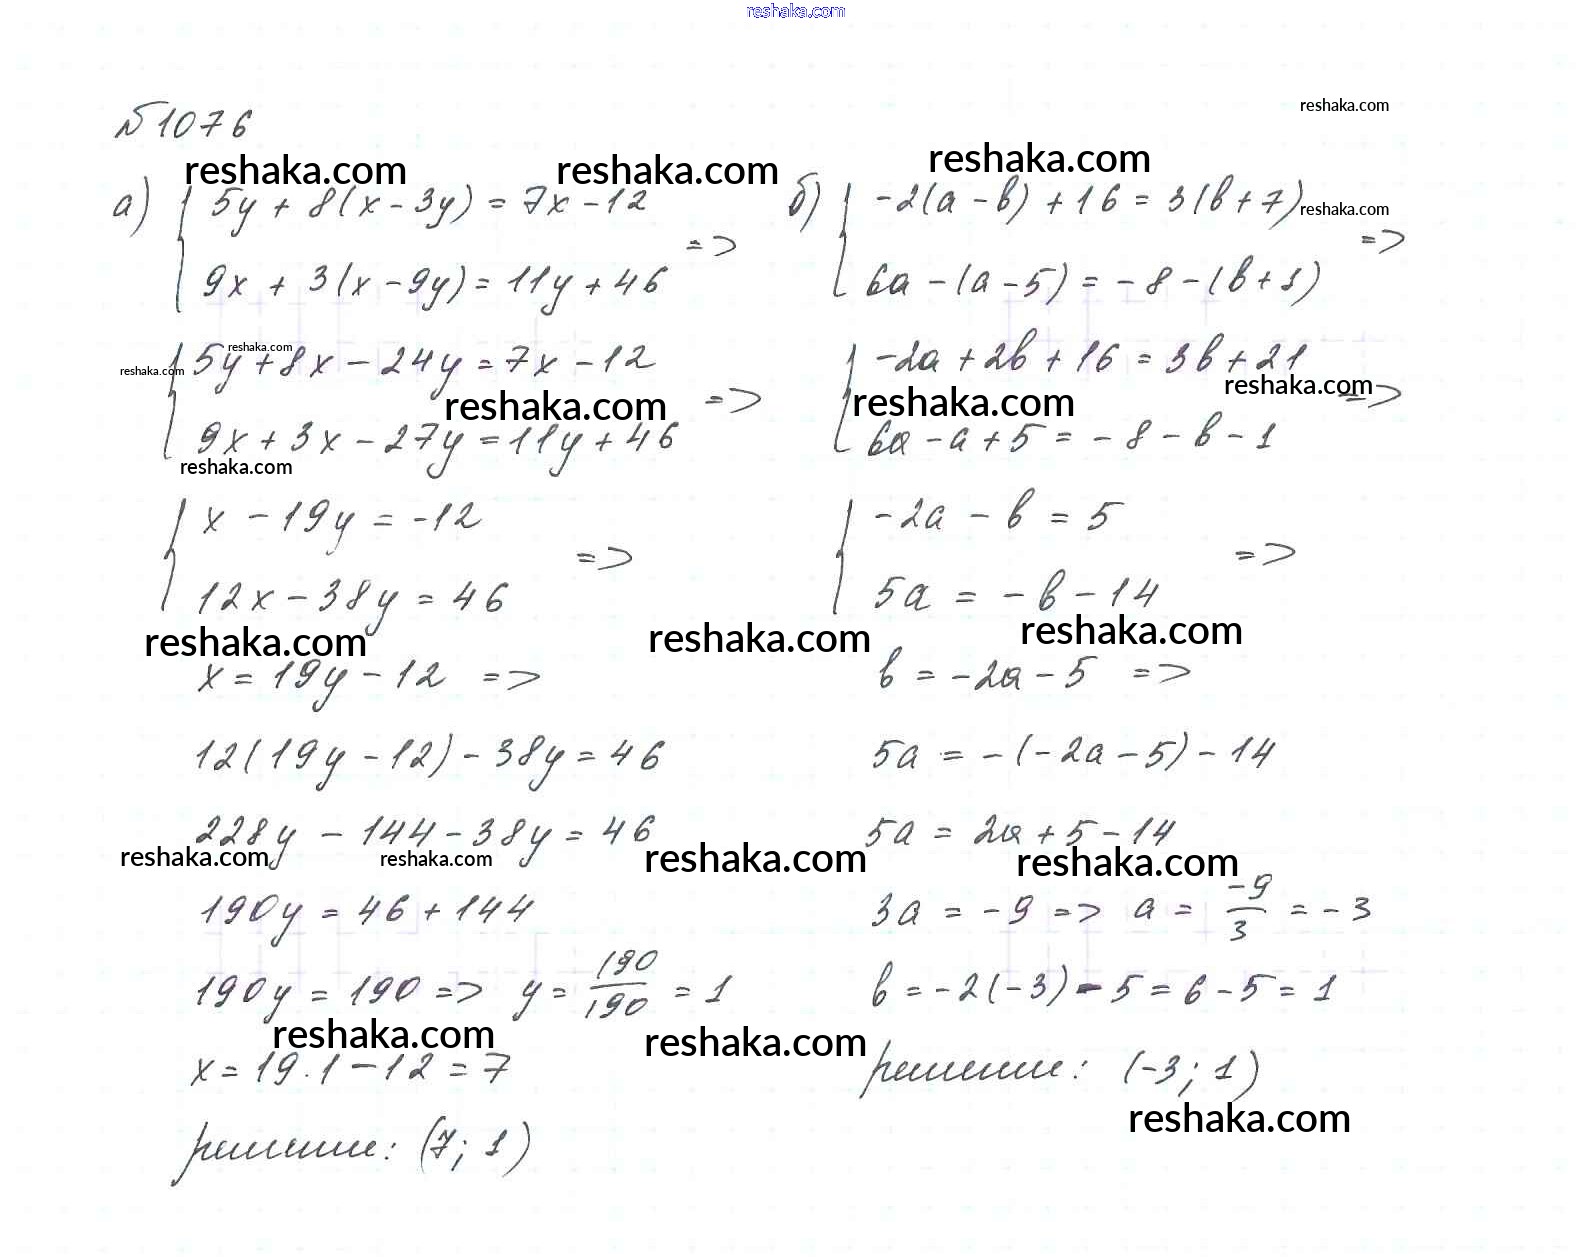 reshaka.com
№1076
reshaka.com
reshaka.com reshaka.com reshaka.com
а) { 5y + 8(x - 3y) = 7x - 12
9x + 3(x - 9y) = 11y + 46 =>
{ 5y + 8x - 24y = 7x - 12
9x + 3x - 27y = 11y + 46 =>
reshaka.com
reshaka.com
reshaka.com
reshaka.com
{ x - 19y = -12
12x - 38y = 46 =>
reshaka.com
reshaka.com
x = 19y - 12 =>
12(19y - 12) - 38y = 46
228y - 144 - 38y = 46
reshaka.com reshaka.com reshaka.com
190y = 46 + 144
190y = 190 => y = 190/190 = 1
reshaka.com reshaka.com
x = 19 · 1 - 12 = 7
решение: (7; 1)
б) { -2(a - b) + 16 = 3(b + 7)
reshaka.com
6a - (a - 5) = -8 - (b + 1) =>
{ -2a + 2b + 16 = 3b + 21
reshaka.com reshaka.com
6a - a + 5 = -8 - b - 1 =>
{ -2a - b = 5
5a = -b - 14 =>
reshaka.com
b = -2a - 5 =>
5a = -(-2a - 5) - 14
5a = 2a + 5 - 14
reshaka.com
3a = -9 => a = -9/3 = -3
b = -2(-3) - 5 = 6 - 5 = 1
решение: (-3; 1)
reshaka.com